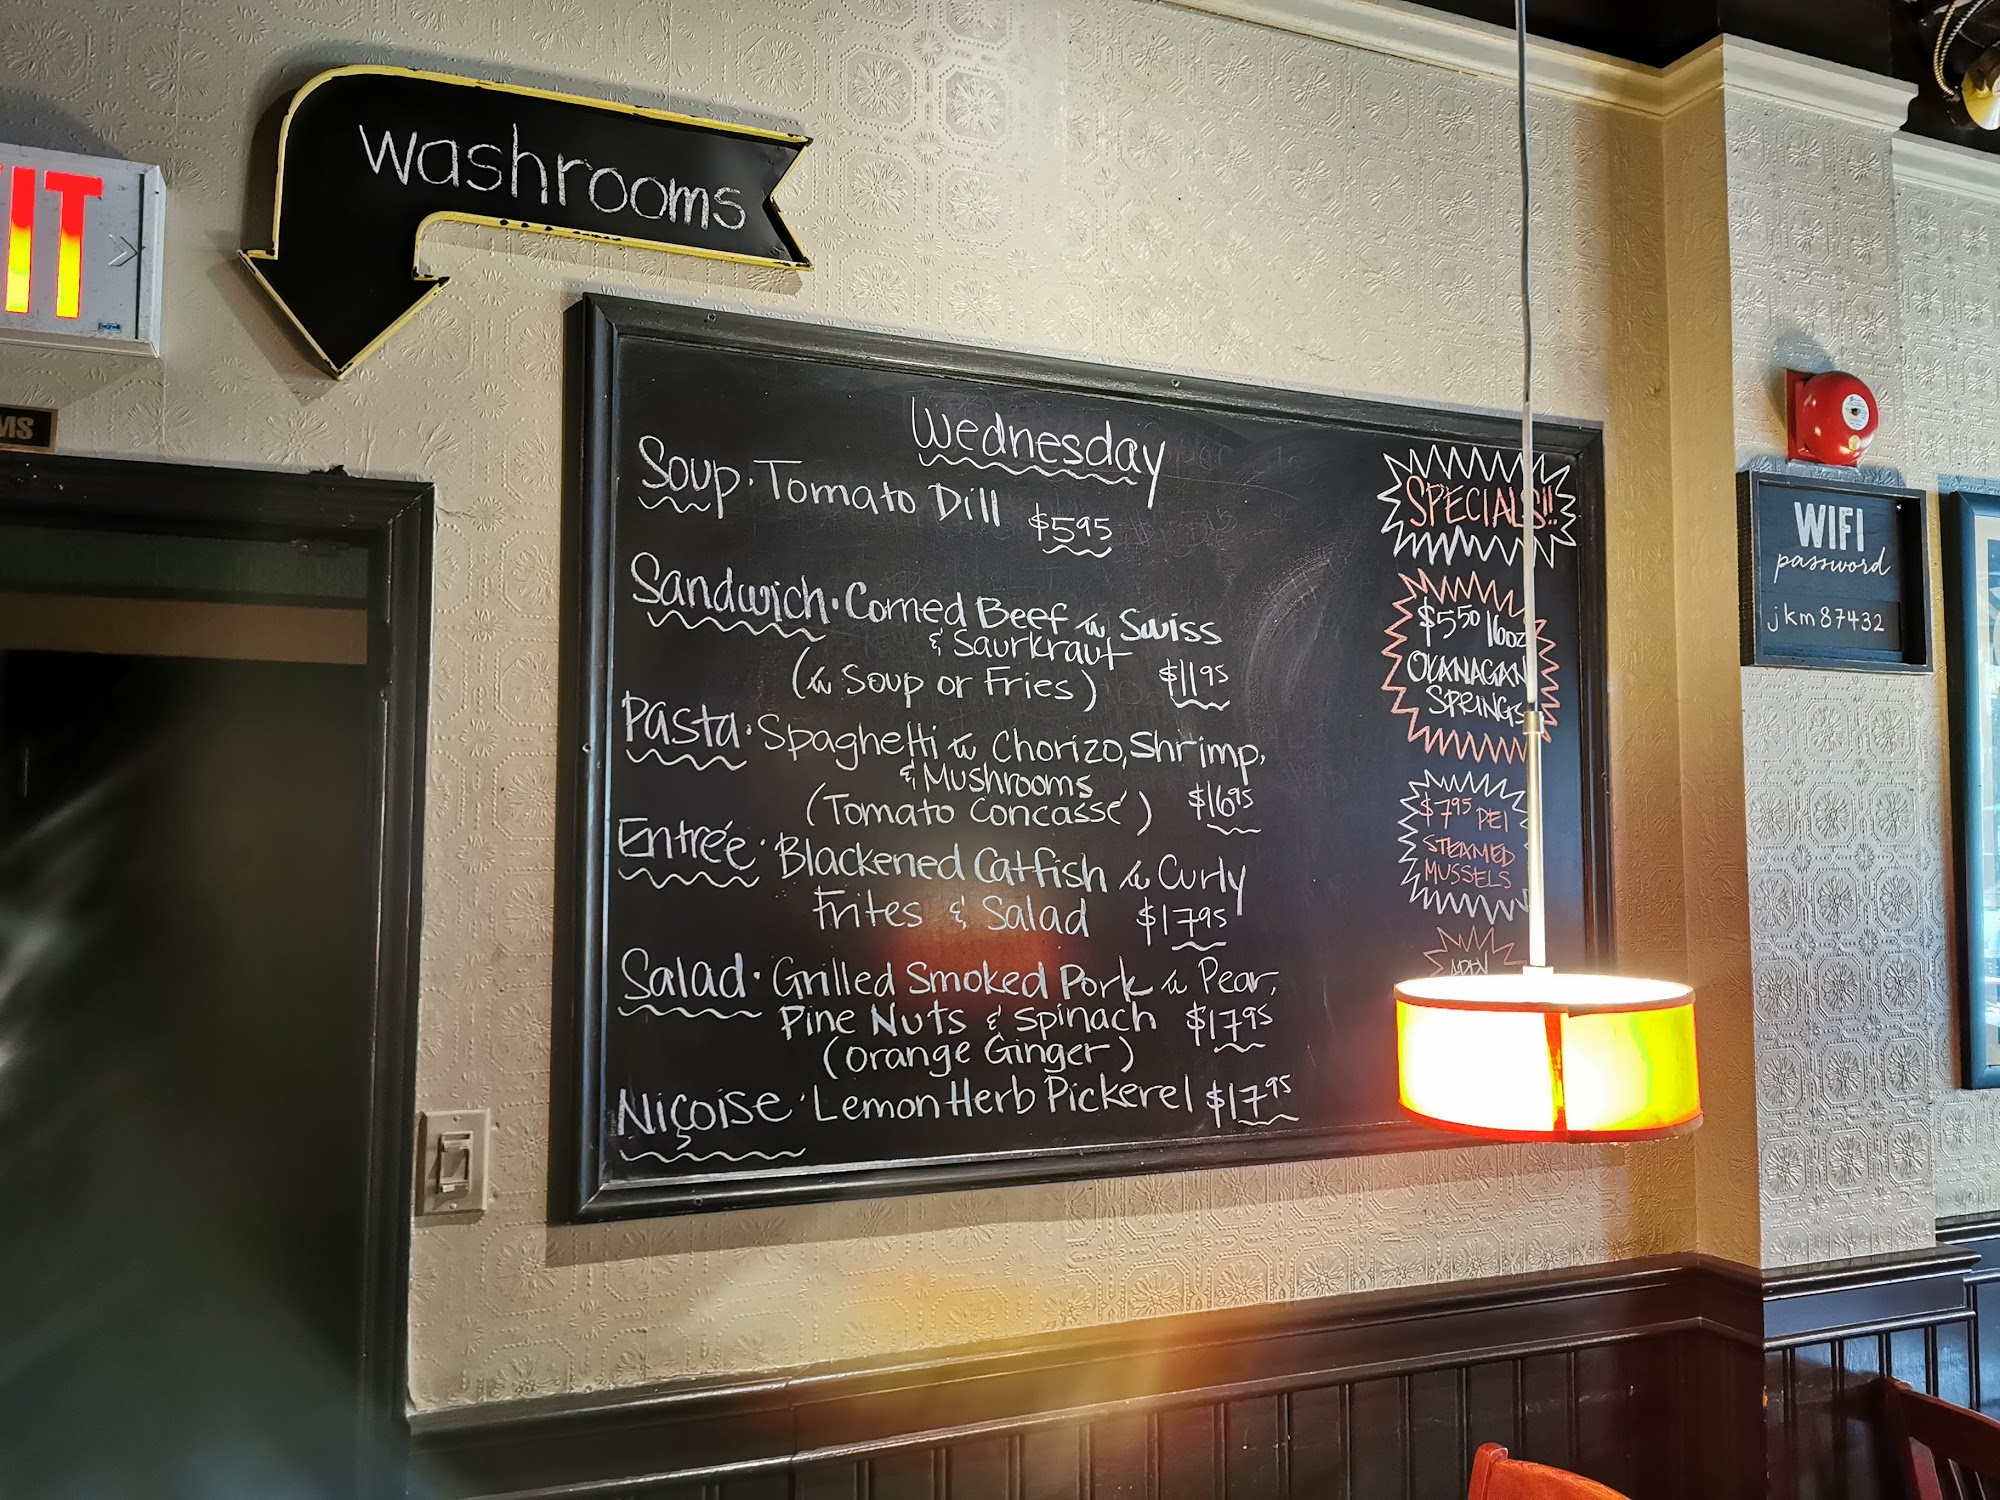 washrooms
IT
MS
Wednesday
Soup · Tomato Dill
$5.95
Sandwich · Corned Beef w Swiss
& Saurkraut
(w Soup or Fries) $11.95
Pasta · Spaghetti w Chorizo, Shrimp,
& Mushrooms
(Tomato Concassé) $16.95
Entrée · Blackened Catfish w Curly
Frites & Salad $17.95
Salad · Grilled Smoked Pork w Pear,
Pine Nuts & Spinach $17.95
(Orange Ginger)
Niçoise · Lemon Herb Pickerel $17.95
SPECIALS!!
$5.50 16oz
OKANAGAN
SPRINGS
$7.95 PEI
STEAMED
MUSSELS
WIFI
password
jkm87432